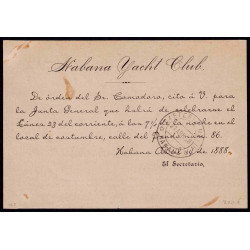 Habana Yacht Club.
De órden del Sr. Comodoro, cito á V. para
la Junta General que habrá de celebrarse el
Lúnes 23 del corriente, á las 7½ de la noche en el
local de costumbre, calle del Prado núm. 86.
Habana 19 de 1888.
El Secretario,